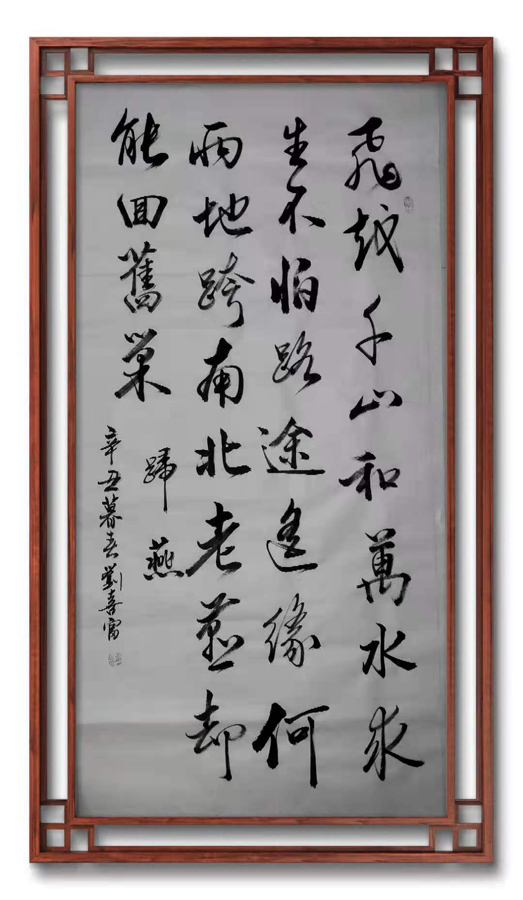 飛越千山和萬水求
生不怕路途遙緣何
兩地跨南北老燕却
能回舊巢
歸燕
辛丑暮春劉喜富